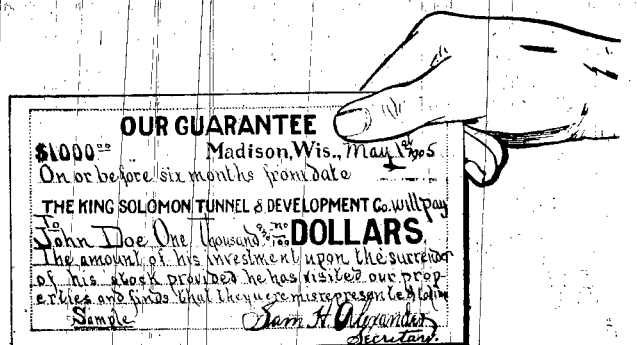 OUR GUARANTEE
$1000.00 Madison, Wis., May 1st 1905
On or before six months from date
THE KING SOLOMON TUNNEL & DEVELOPMENT Co. will pay
To John Doe One Thousand & no/100 DOLLARS
The amount of his investment upon the surrender
of his stock provided he has visited our prop-
erties and finds that they were misrepresented to him
Sample Sam H. Alexander
Secretary.